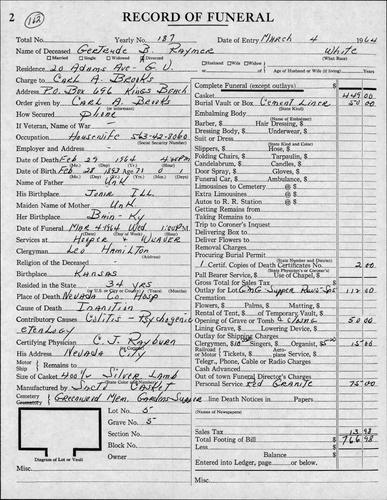 2 (162) RECORD OF FUNERAL
Total No. Yearly No. 187 Date of Entry March 4 1964
Name of Deceased Gertrude B. Raymer White
Married Single Widowed Divorced (What Race)
Residence 20 Adams Ave - G.V. Husband Wife Widow of Age of Husband or Wife (if living) Years
Charge to Carl A. Brooks
Address P.O. Box 696 Kings Beach
Order given by Carl A. Brooks
How Secured Phone
If Veteran, Name of War
Occupation Housewife 563-42-8060
Employer and Address
Date of Death Feb 29 1964 4 PM
Date of Birth Feb 28 1893 Age 71 0 1
Name of Father Unk
His Birthplace Ill.
Maiden Name of Mother Unk
Her Birthplace Ky
Date of Funeral Mar 4 1964 Wed. 1:00 P.M.
Services at Hooper & Weaver
Clergyman Leo Hamilton
Religion of the Deceased
Birthplace Kansas
Resided in the State 34 yrs
Place of Death Nevada Co. Hosp
Cause of Death Inanition
Contributory Causes Colitis - Psychogenic
etenlogy
Certifying Physician C. J. Rayburn
His Address Nevada City
Motor Ship Remains to
Size of Casket Silver Lamb
Manufactured by Casket
Cemetery Greenwood Mem. Gardens
Lot No. 5
Grave No. 5
Section No.
Block No.
Owner
Diagram of Lot or Vault
Misc.
Complete Funeral (except outlays) $
Casket 449.00
Burial Vault or Box Cement Liner 50.00
Embalming Body
(Name of Embalmer)
Barber, $ Hair Dressing, $
Dressing Body, $ Underwear, $
Suit or Dress
(State Kind and Color)
Slippers, $ Hose, $
Folding Chairs, $ Tarpaulin, $
Candelabrum, $ Candles, $
Door Spray, $ Gloves, $
Funeral Car, $ Ambulance, $
Limousines to Cemetery @ $
Extra Limousines @ $
Autos to R. R. Station @ $
Getting Remains from
Taking Remains to
Trip to Coroner's Inquest
Delivering Box to
Deliver Flowers to
Removal Charges
Procuring Burial Permit
1 Certif. Copies of Death Certificates No. 2.00
Pall Bearer Service, $ Use of Chapel, $
Gross Total for Sales Tax $
Outlay for Lot 112.00
Cremation
Flowers, $ Palms, $ Matting, $
Rental of Tent, $ of Temporary Vault, $
Opening of Grave or Tomb & Closing 50.00
Lining Grave, $ Lowering Device, $
Outlay for Shipping Charges
Clergymen, $ Singers, $ Organist, 5.00 15.00
Telegr., Phone, Cable or Radio Charges
Cash Advanced
Out of town Funeral Director's Charges
Personal Service Red Granite 75.00
line Death Notices in Papers
(Names of Newspapers)
Sales Tax 13.98
Total Footing of Bill $ 766.98
Less
Balance $
Entered into Ledger, page or below.
Misc.